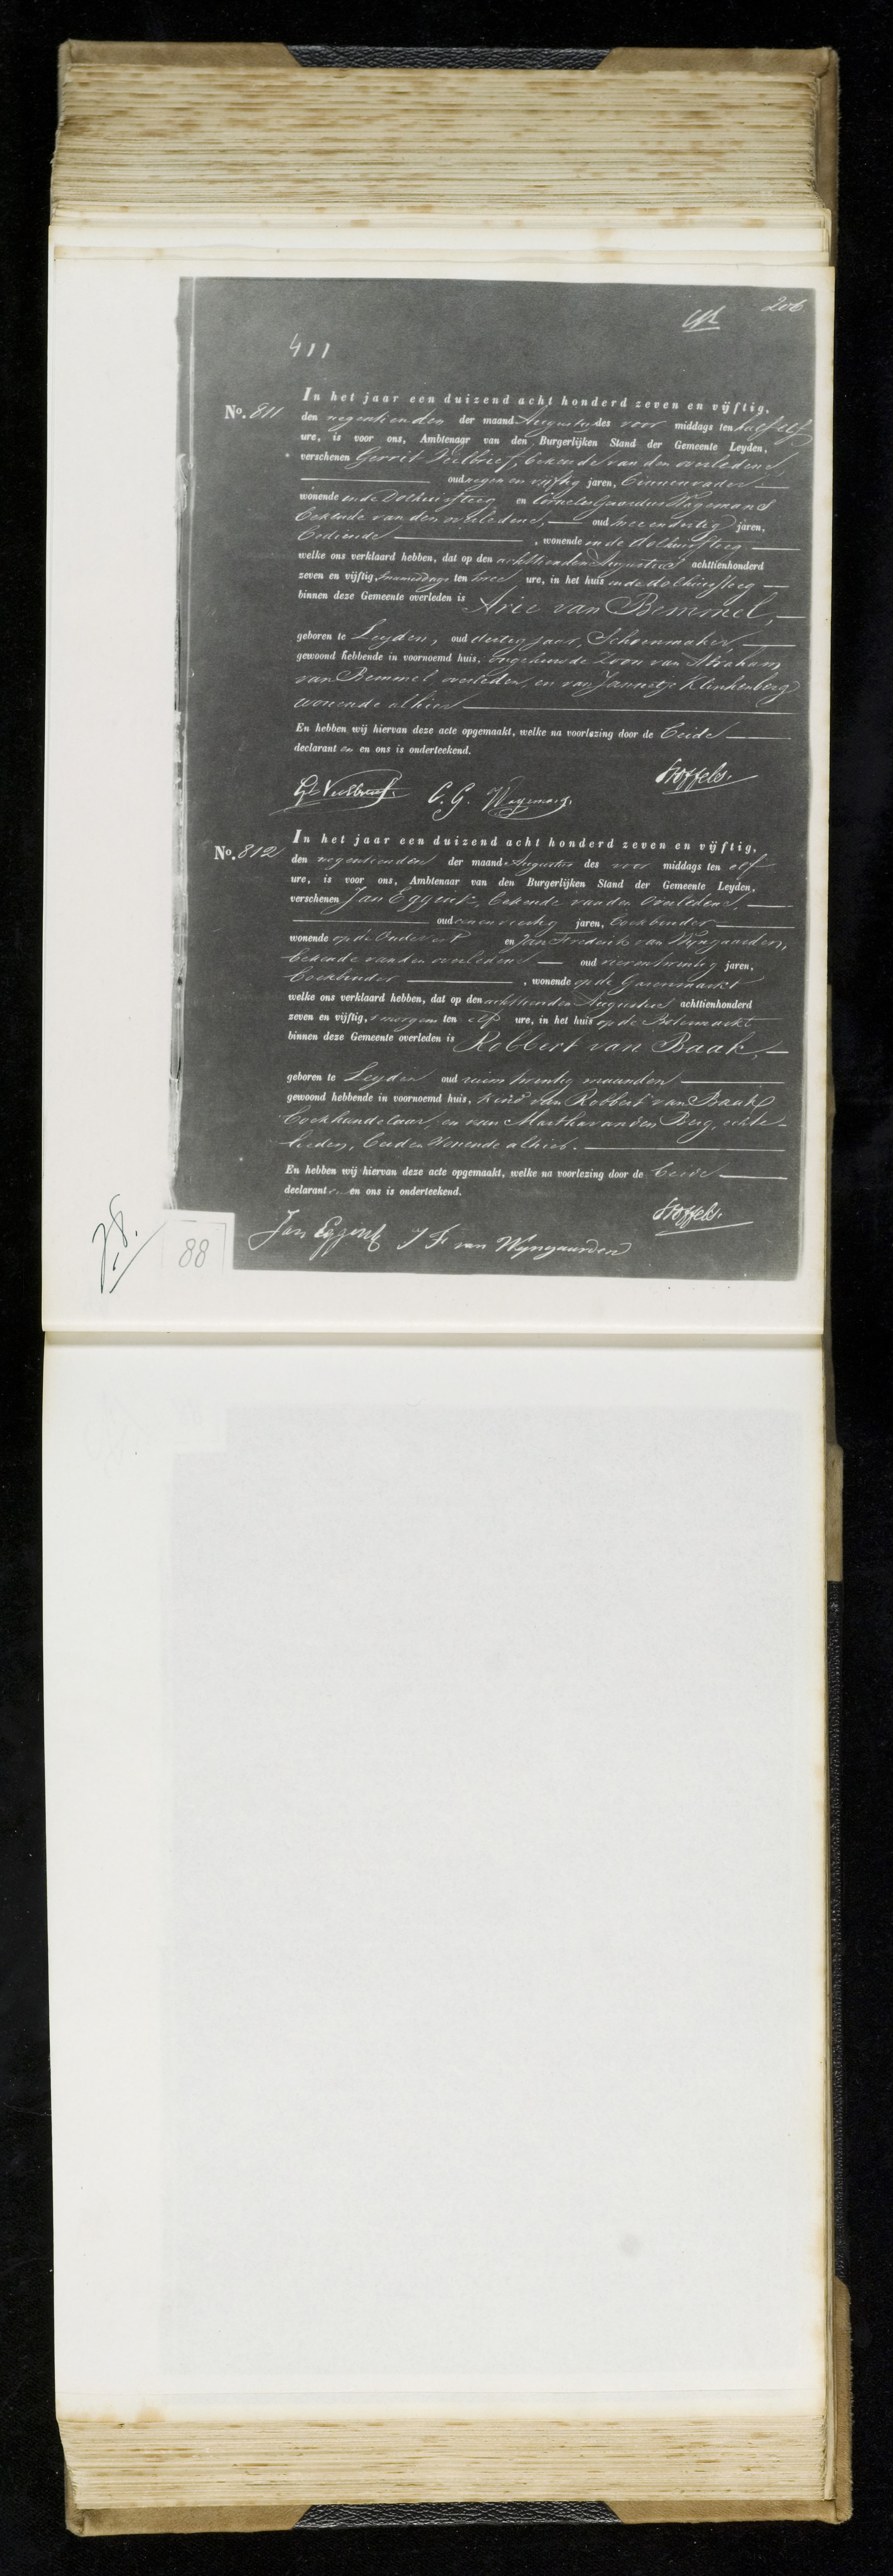 206
411
No. 811
In het jaar een duizend acht honderd zeven en vijftig,
den negentienden der maand Augustus des voor middags ten half elf
ure, is voor ons, Ambtenaar van den Burgerlijken Stand der Gemeente Leyden,
verschenen Gerrit Veilbrief, bekende van den overledene,
oud negen en vijftig jaren, binnenvader
wonende in de Dolhuissteeg en Cornelis Gaardus Wagemans
bekende van den overledene, oud twee en dertig jaren,
bediende, wonende in de Dolhuissteeg
welke ons verklaard hebben, dat op den achttienden Augustus achttienhonderd
zeven en vijftig, 'snamiddags ten twee ure, in het huis in de Dolhuissteeg
binnen deze Gemeente overleden is Arie van Bemmel,
geboren te Leyden, oud dertig jaar, Schoenmaker,
gewoond hebbende in voornoemd huis, ongehuwde Zoon van Abraham
van Bemmel, overleden, en van Jannetje Klinkenberg
wonende alhier
En hebben wij hiervan deze acte opgemaakt, welke na voorlezing door de beide
declarant en en ons is onderteekend.
Stoffels.
C. G. Wagemans.
No. 812
In het jaar een duizend acht honderd zeven en vijftig,
den negentienden der maand Augustus des voor middags ten elf
ure, is voor ons, Ambtenaar van den Burgerlijken Stand der Gemeente Leyden,
verschenen Jan Eggink, bekende van den overledene,
oud een en veertig jaren, boekbinder
wonende op de Oudevest en Jan Frederik van Wijngaarden,
bekende van den overledene oud vier en twintig jaren,
boekbinder, wonende op de Garenmarkt
welke ons verklaard hebben, dat op den achttienden Augustus achttienhonderd
zeven en vijftig, smorgens ten elf ure, in het huis op de Botermarkt
binnen deze Gemeente overleden is Robbert van Baak,
geboren te Leyden oud ruim twintig maanden
gewoond hebbende in voornoemd huis, kind van Robbert van Baak
boekhandelaar, en van Martha van den Berg, echte-
lieden, beiden wonende alhier.
En hebben wij hiervan deze acte opgemaakt, welke na voorlezing door de beide
declarant en en ons is onderteekend.
Stoffels.
Jan Eggink J F van Wijngaarden
88